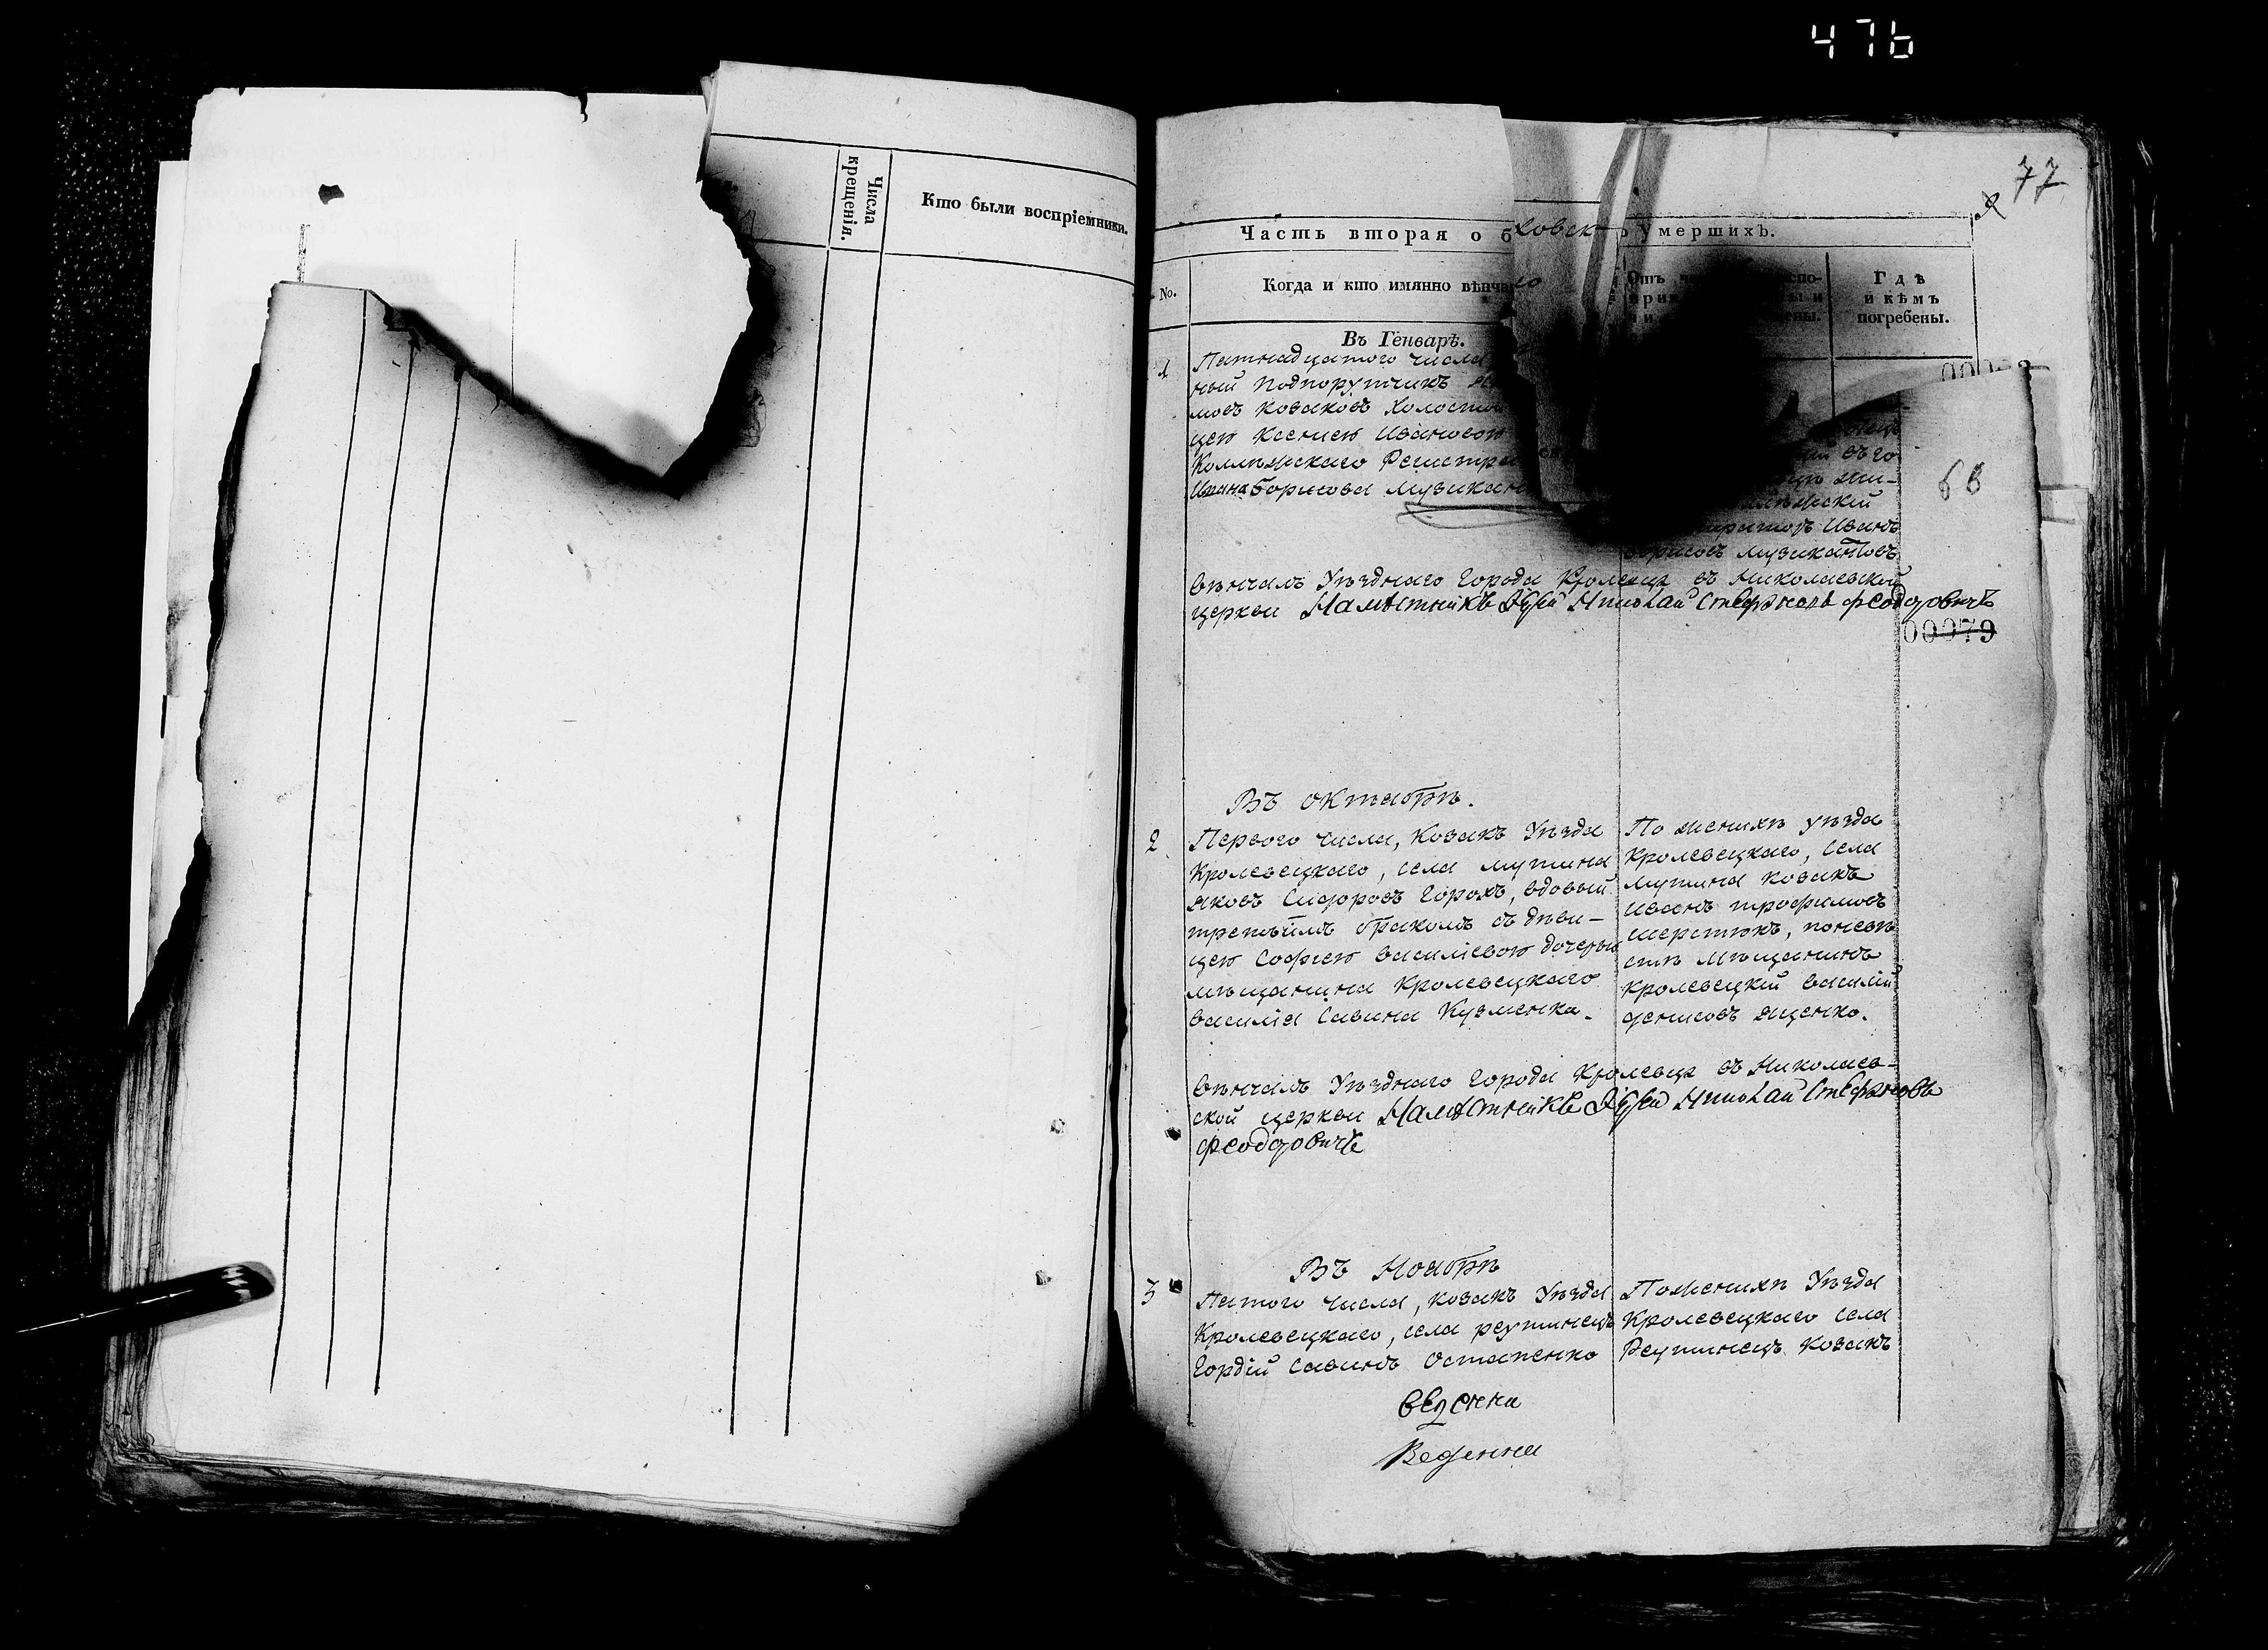 476
Числа
крещенія.
Кто были воспріемники.
77
Часть вторая о б
ховск
умершихъ.
No.
Когда и кто имянно вѣнча
Отъ
Гдѣ
и кѣмъ
погребены.
Въ Генварѣ.
1
Пятнадцатого числа
ный Подпорутчикъ
мовъ Козаковъ Холостый
цею Ксениею Ивановою
Коллежскаго Регистра
Ивана Борисова Музикан
Иванъ
Борисовъ Музикантовъ
68
Вѣнчалъ Уѣзднаго Города Кролевца въ Николаевской
церкви Намѣстникъ Іерей Николай Стефановъ Феодоровичъ
00079
Въ октябрѣ.
2
Первого числа, Козакъ Уѣзда
Кролевецкаго, села Мутина
Яковъ Сидоровъ Горохъ, вдовый
третьимъ бракомъ съ дѣви-
цею Софиею Василіевою дочерью
мѣщанина Кролевецкаго
Василія Савина Кузменка.
По женихѣ уѣзда
Кролевецкаго, села
Мутина козакъ
Иванъ Трофимовъ
Шерстюкъ, по невѣ
стѣ мѣщанинъ
Кролевецкій Василій
Денисовъ Яценко.
Вѣнчалъ Уѣзднаго Города Кролевца въ Николаев-
ской церкви Намѣстникъ Іерей Николай Стефановъ
Феодоровичъ
Въ Ноябрѣ
3
Пятого числа, козакъ Уѣзда
Кролевецкаго, села Реутинецъ
Гордій Савинъ Остапенко
По женихѣ Уѣзда
Кролевецкаго села
Реутинецъ козакъ
Веденна